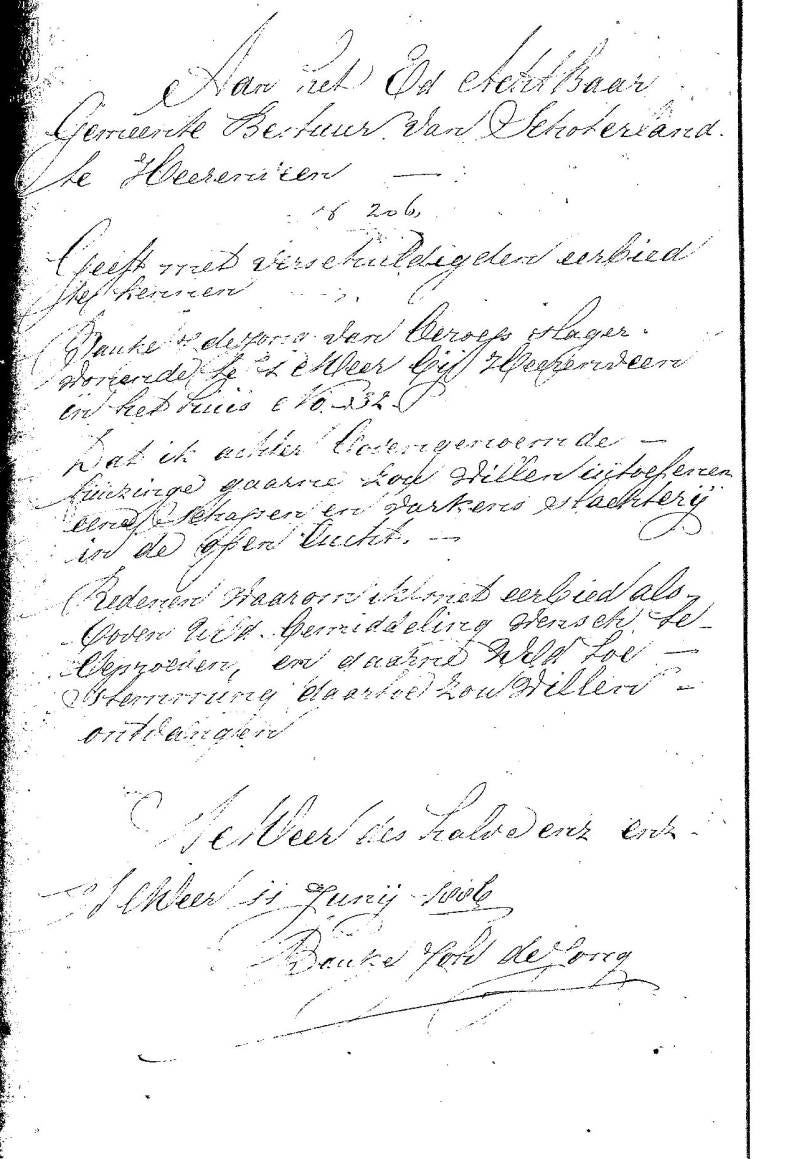 Aan het Ed Achtbaar
Gemeente Bestuur van Schoterland
te Heerenveen —
206
Geeft met verschuldigden eerbied
te kennen
Bauke de Jong van beroep slager
wonende te 't Meer bij Heerenveen
in het huis No. 132
Dat ik achter bovengenoemde —
huizinge gaarne zou willen uitoefenen
eene schapen en varkens slachterij
in de open lucht. —
Redenen waarom ik met eerbied als
boven bemiddeling wensch te
en gaarne toe —
stemming daartoe zou willen -
ontvangen
't Meer des halve enz enz.
't Meer 11 Junij
Bauke de Jong